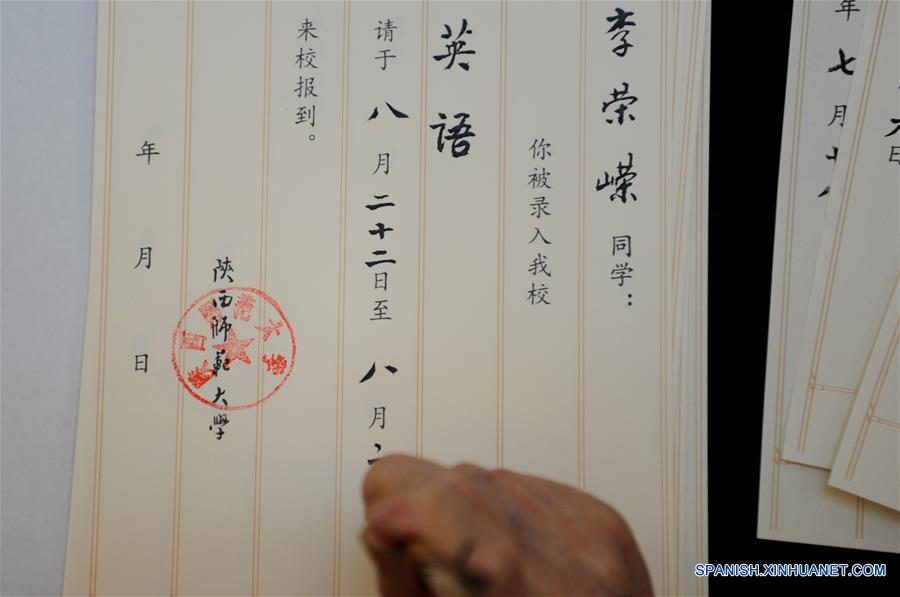 李荣嵘同学：
你被录入我校
英语
请于八月二十二日至八月二
来校报到。
陝西師範大學
年月日
陕西师范大学
年七月十八
六日
年
SPANISH.XINHUANET.COM